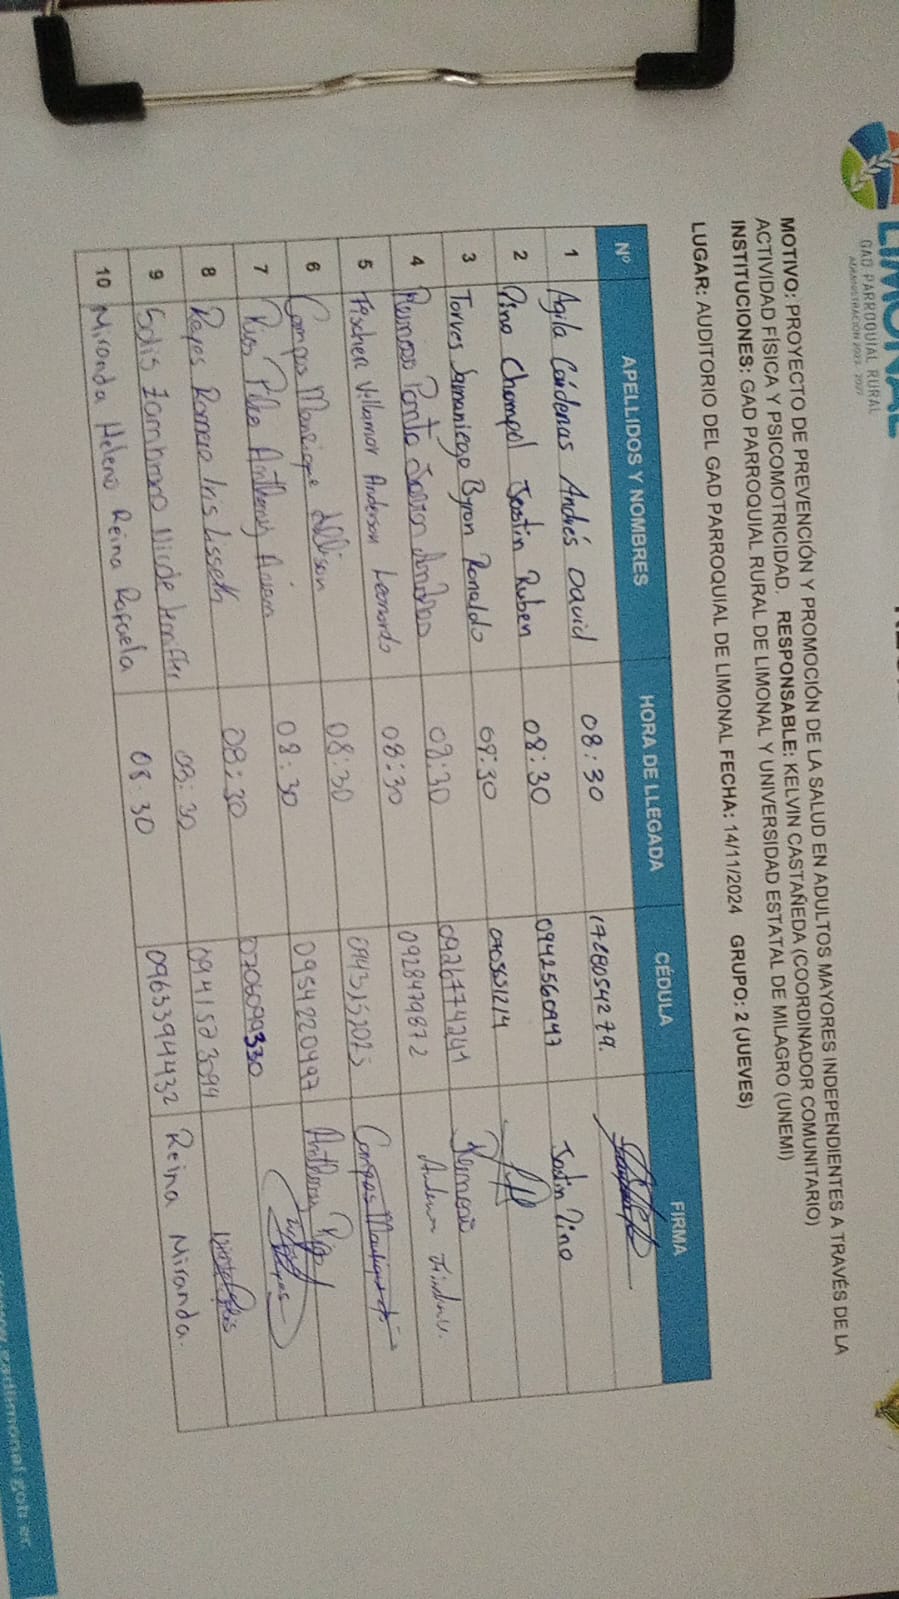 LIMONAL
GAD PARROQUIAL RURAL
ADMINISTRACIÓN 2023 - 2027
MOTIVO: PROYECTO DE PREVENCIÓN Y PROMOCIÓN DE LA SALUD EN ADULTOS MAYORES INDEPENDIENTES A TRAVÉS DE LA
ACTIVIDAD FÍSICA Y PSICOMOTRICIDAD. RESPONSABLE: KELVIN CASTAÑEDA (COORDINADOR COMUNITARIO)
INSTITUCIONES: GAD PARROQUIAL RURAL DE LIMONAL Y UNIVERSIDAD ESTATAL DE MILAGRO (UNEMI)
LUGAR: AUDITORIO DEL GAD PARROQUIAL DE LIMONAL FECHA: 14/11/2024 GRUPO: 2 (JUEVES)
Nº APELLIDOS Y NOMBRES HORA DE LLEGADA CÉDULA FIRMA
1 Agila Cárdenas Andrés David 08:30
2 Pino Chompol Jostin Ruben 08:30 0942560947 Jostin Pino
3 Torres Samaniego Byron Ronaldo 08:30
4 Reinoso 08:30 Reinoso
5 Fischer Villamar Anderson Leonardo 08:30 0928479872
6 Campos Manrique Allison 08:30 Campos
7 Rios Anthony 08:30 0954220497 Anthony
8 Reyes Romero Iris Lisseth 08:30 0706099330
9 Solis Zambrano 08:30
10 Miranda Heleno Reina Rafaela 08:30 0963394432 Reina Miranda.